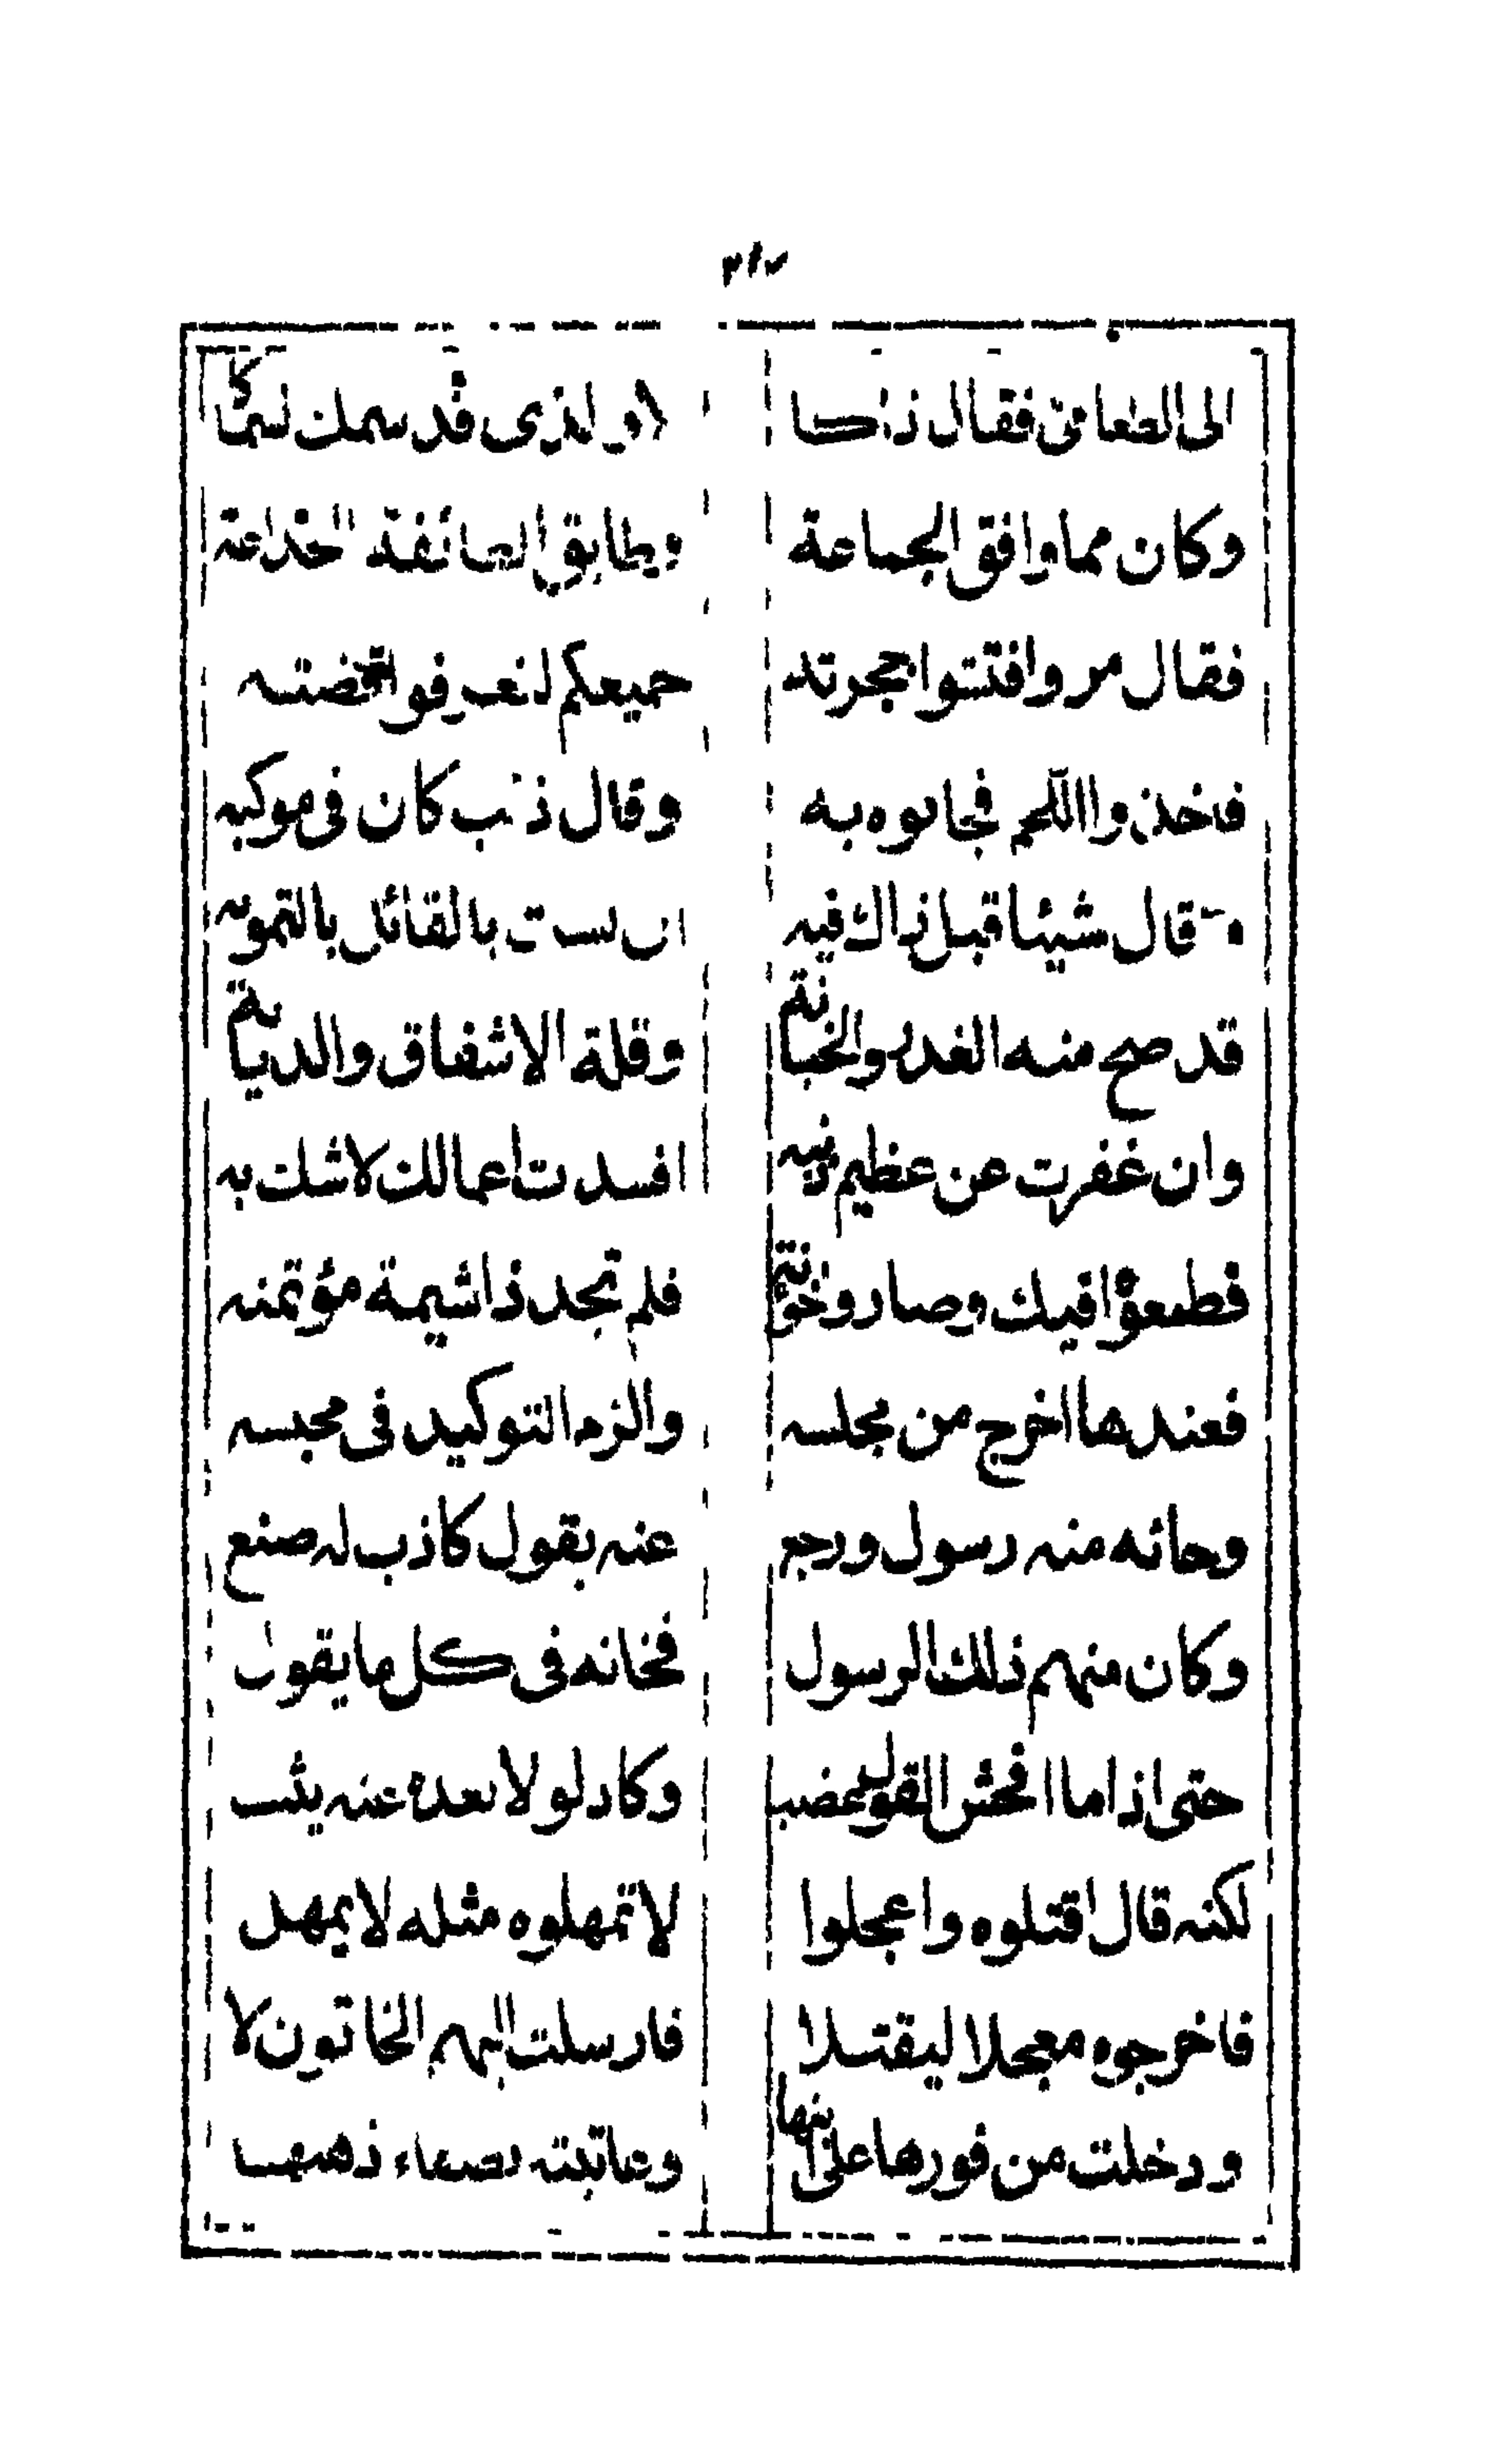 الى الطعام فقال ذاكا لا والذى قد سمك السماكا
وكان مما وافق الجماعة وطابق الصائفة الخداعة
فقال مروا فتشوا حجرته جميعكم لنعرفوا
فاخذوا اللحم فجاىوه به وقال ذئب كان فى موكبه
قال شيئا قبل ذاك فيه لست بالقائل بالتمويه
قد صح منه الغدر والخيانة وقلة الاشفاق والديانة
وان غفرت عن عظيم ذنبه افسدت اعمالك لاشك به
فطمعوا فيك وصاروا خونة فلم تجد ذا شيمة مؤتمنه
فعندها اخرج من مجلسه والزم التوكيد فى محبسه
وجائه منه رسول ورجع عنه بقول كاذب له صنع
وكان منهم ذلك الرسول فخانه فى كل ما يقول
حتى اذا ما افحش القول غضب وكاد لولا بعده عنه يثب
لكنه قال اقتلوه واعجلوا لا تمهلوه مثله لا يمهل
فاخرجوه معجلا ليقتلا فارسلت اليهم الخاتون لا
ودخلت من فورها على ابنها وعاتبته بصفاء ذهنها